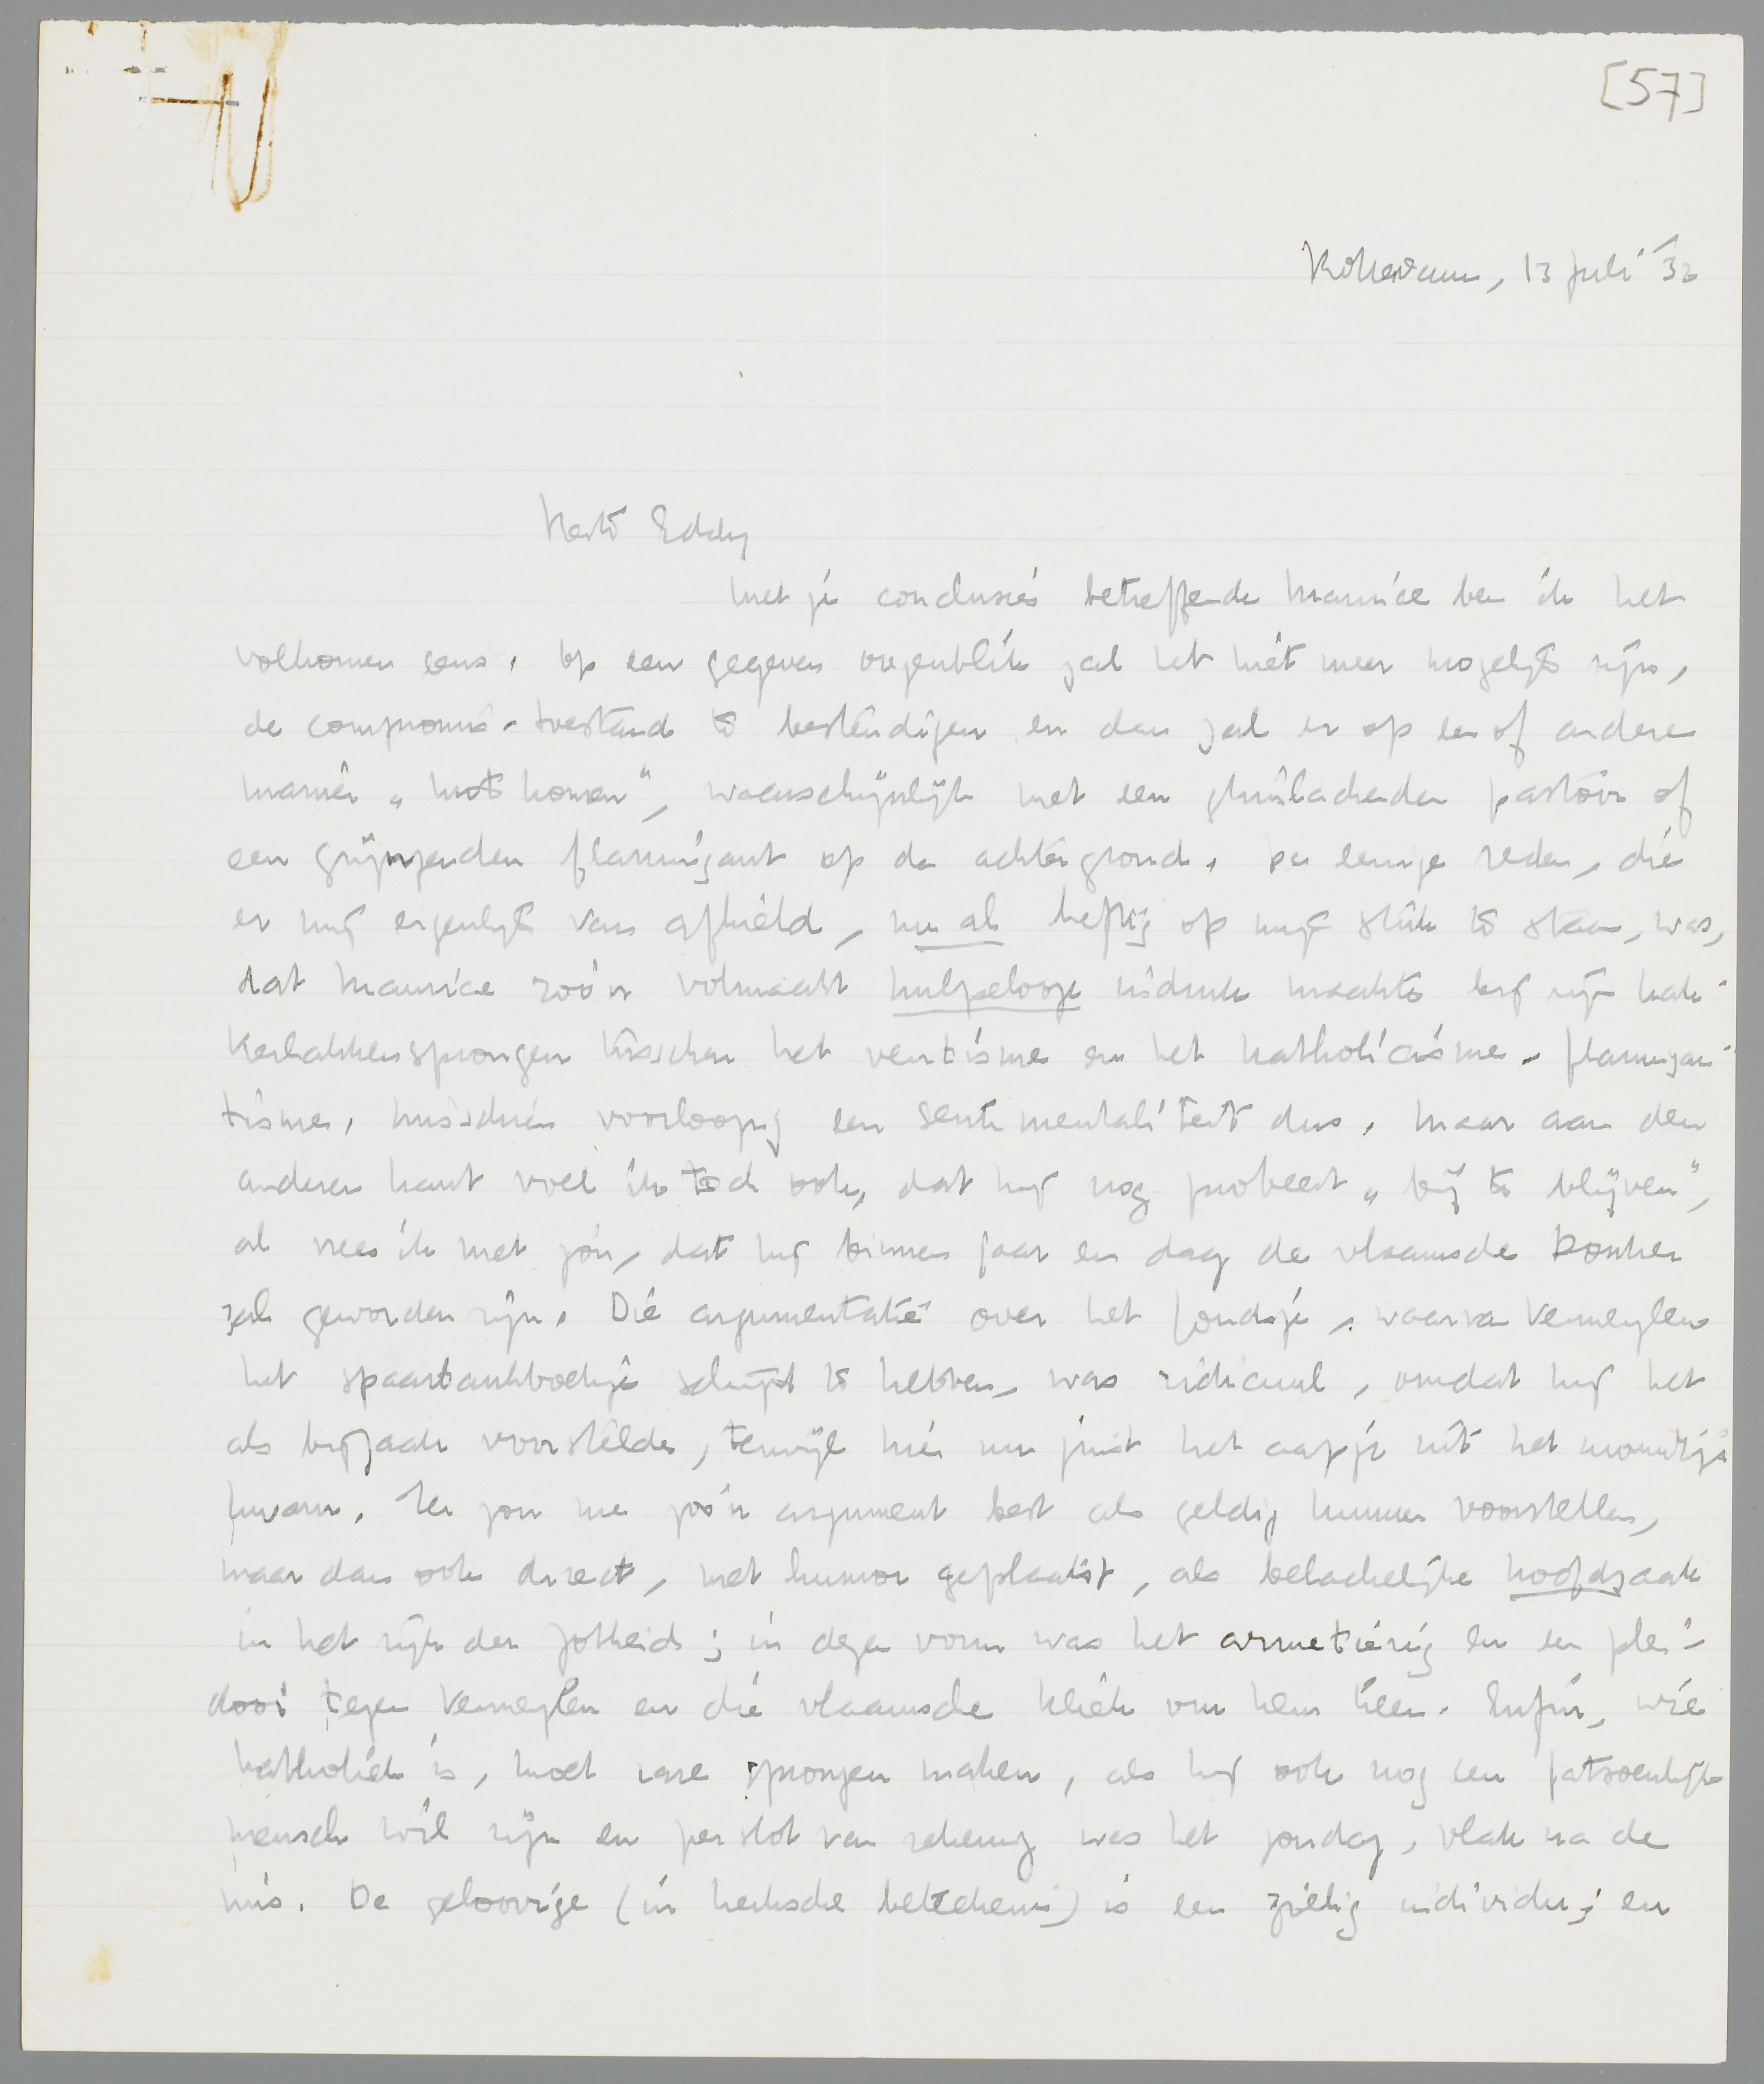 [57]
Rotterdam, 13 Juli '32
Beste Eddy
Met je conclusies betreffende Maurice ben ik het
volkomen eens. Op een gegeven oogenblik zal het niet meer mogelijk zijn,
de compromis-toestand te bestendigen en dan zal er op een of andere
manier „mot komen", waarschijnlijk met een glimlachenden pastoor of
een grijnzenden flamingant op de achtergrond. De eenige reden, die
er mij eigenlijk van afhield, nu al heftig op mijn stuk te staan, was,
dat Maurice zóó'n volmaakt hulpelooze indruk maakte bij zijn kak-
kerlakkensprongen tusschen het ventisme en het katholicisme-flamigan-
tisme. Misschien voorloopig een sentimentaliteit dus. Maar aan den
anderen kant voel ik toch ook, dat hij nog probeert „bij te blijven",
al vrees ik met jou, dat hij binnen jaar en dag de vlaamsche Donker
zal geworden zijn. Die argumentatie over het fondsje, waarvan Vermeylen
het spaarbankboekje schijnt te hebben, was ridicuul, omdat hij het
als bijzaak voorstelde, terwijl hier nu juist het aapje uit het mouwtje
kwam. Ik zou me zoo'n argument best als geldig kunnen voorstellen,
maar dan ook direct, met humor geplaatst, als belachelijke hoofdzaak
in het rijk der zotheid; in dezen vorm was het armetierig en een plei-
dooi tegen Vermeylen en die vlaamsche kliek om hem heen. Enfin, wie
katholiek is, moet rare sprongen maken, als hij ook nog een fatsoenlijk
mensch wil zijn en per slot van rekening was het zondag, vlak na de
mis. De geloovige (in kerksche beteekenis) is een zielig individu; en